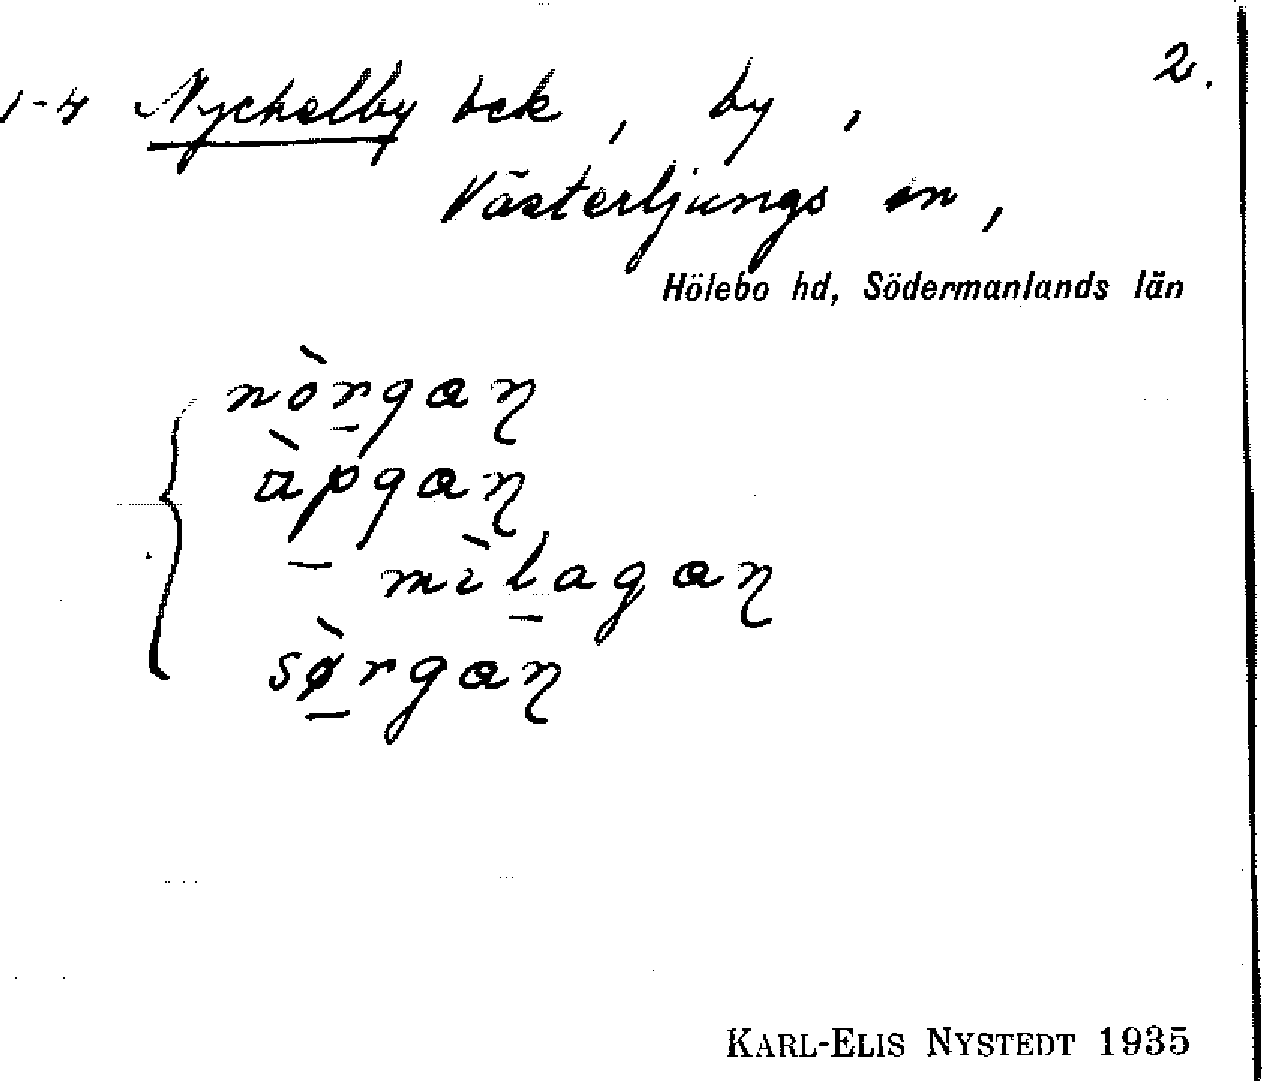 2.
1-4 Nyckelby bck, by,
Västerljungs sn,
Hölebo hd, Södermanlands län
nòr̲gaɳ
ùp̲gaɳ
mìl̲agaɳ
sø̲̀rgaɳ
KARL-ELIS NYSTEDT 1935